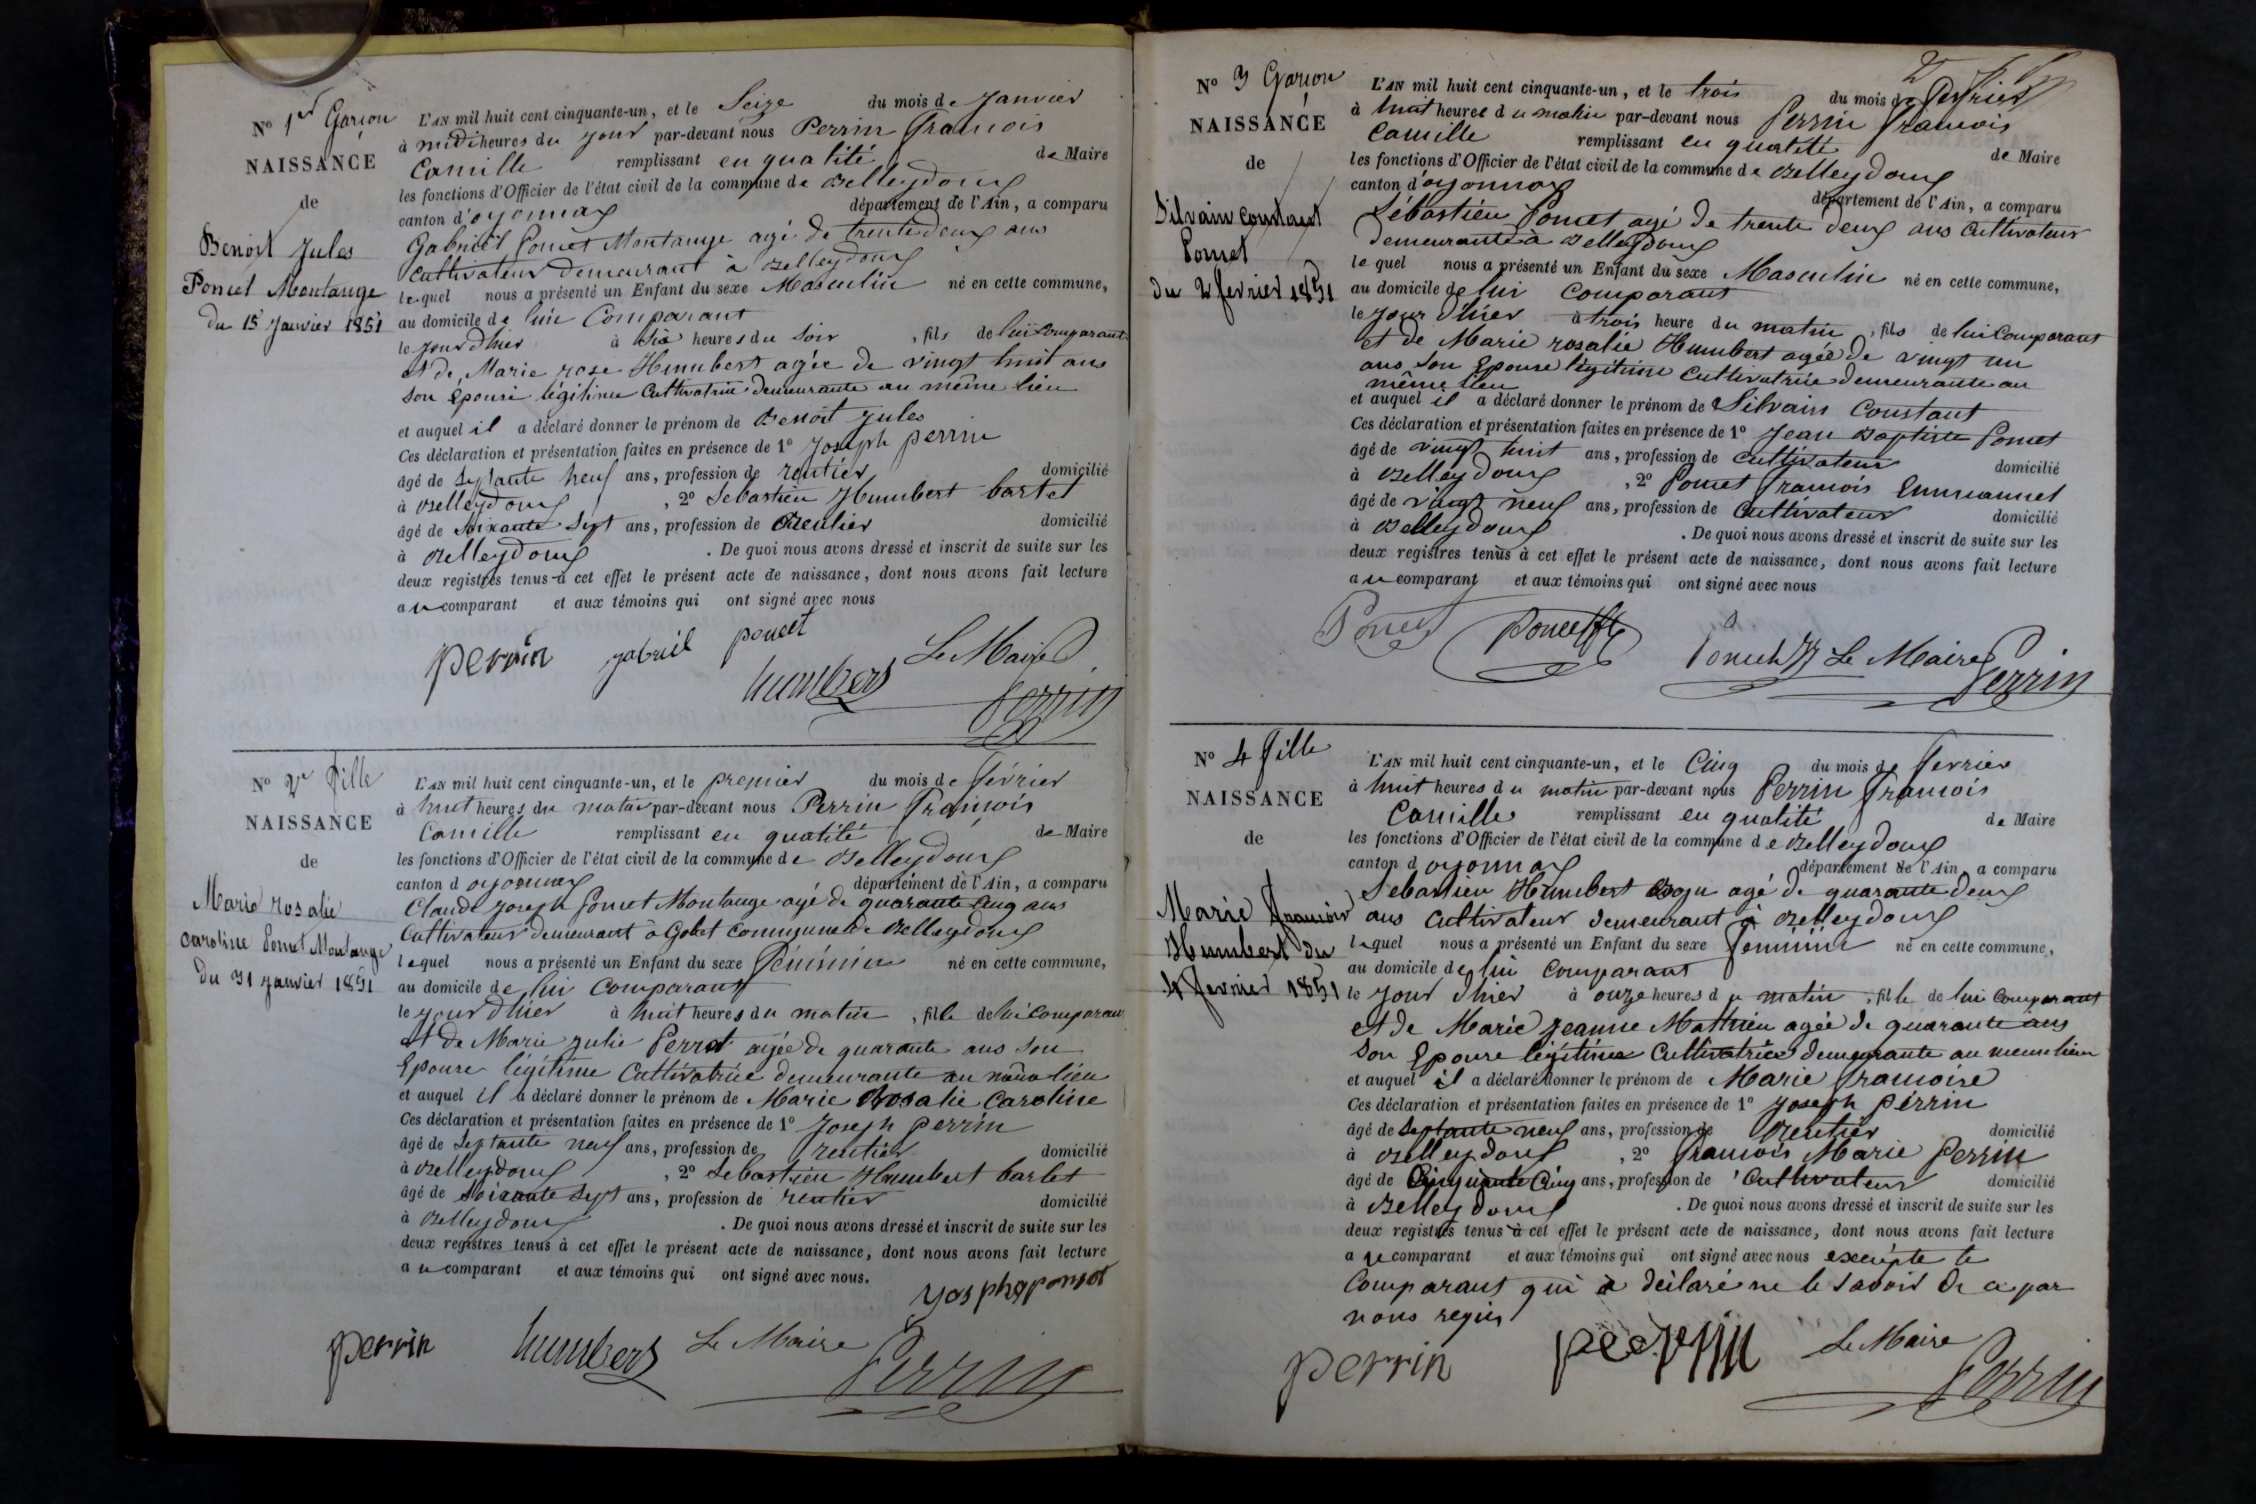 No 1er Garçon
NAISSANCE
de
Benoit Jules
Poncet Montange
du 15 Janvier 1851
L'AN mil huit cent cinquante-un, et le Seize du mois de Janvier
à midi heures du jour par-devant nous Perrin François
Camille remplissant en qualité de Maire
les fonctions d'Officier de l'état civil de la commune de Belleydoux
canton d'oyonnax département de l'Ain, a comparu
Gabriel Poncet Montange agé de trente deux ans
cultivateur demeurant à Belleydoux
lequel nous a présenté un Enfant du sexe Masculin né en cette commune,
au domicile de lui Comparant
le jour d'hier à six heures du soir, fils de lui Comparant
et de Marie rose Humbert agée de vingt huit ans
son épouse légitime Cultivatrice demeurante au même lieu
et auquel il a déclaré donner le prénom de Benoit Jules
Ces déclaration et présentation faites en présence de 1º Joseph perrin
âgé de Septante neuf ans, profession de rentier domicilié
à Belleydoux, 2º Sebastien Humbert barlet
âgé de soixante Sept ans, profession de Rentier domicilié
à Belleydoux. De quoi nous avons dressé et inscrit de suite sur les
deux registres tenus à cet effet le présent acte de naissance, dont nous avons fait lecture
au comparant et aux témoins qui ont signé avec nous
perrin gabriel poncet humbert Le Maire
Perrin
No 2e fille
NAISSANCE
de
Marie rosalie
Caroline Poncet Montange
du 31 janvier 1851
L'AN mil huit cent cinquante-un, et le premier du mois de février
à huit heures du matin par-devant nous Perrin François
Camille remplissant en qualité de Maire
les fonctions d'Officier de l'état civil de la commune de Belleydoux
canton d oyonnax département de l'Ain, a comparu
Claude Joseph Poncet Montange agé de quarante Cinq ans
Cultivateur demeurant à Gobet Commune de Belleydoux
lequel nous a présenté un Enfant du sexe Féminin né en cette commune,
au domicile de lui Comparant
le jour d'hier à huit heures du matin, fille de lui Comparant
et de Marie julie Perrot agée de quarante ans son
Epouse légitime Cultivatrice demeurante au même lieu
et auquel il a déclaré donner le prénom de Marie Rosalie Caroline
Ces déclaration et présentation faites en présence de 1º Joseph perrin
âgé de Septante neuf ans, profession de rentier domicilié
à Belleydoux, 2º Sebastien Humbert barlet
âgé de soixante Sept ans, profession de rentier domicilié
à Belleydoux. De quoi nous avons dressé et inscrit de suite sur les
deux registres tenus à cet effet le présent acte de naissance, dont nous avons fait lecture
au comparant et aux témoins qui ont signé avec nous.
perrin humbert Le Maire
Perrin
2
No 3 Garçon
NAISSANCE
de
Silvain Constant
Poncet
du 2 février 1851
L'AN mil huit cent cinquante-un, et le trois du mois de février
à huit heures du matin par-devant nous Perrin François
Camille remplissant en qualité de Maire
les fonctions d'Officier de l'état civil de la commune de Belleydoux
canton d'oyonnax département de l'Ain, a comparu
Sébastien Poncet agé de trente deux ans Cultivateur
demeurant à Belleydoux
lequel nous a présenté un Enfant du sexe Masculin né en cette commune,
au domicile de lui Comparant
le jour d'hier à trois heure du matin, fils de lui Comparant
et de Marie rosalie Humbert agée de vingt un
ans son Epouse légitime Cultivatrice demeurante au
même lieu
et auquel il a déclaré donner le prénom de Silvain Constant
Ces déclaration et présentation faites en présence de 1º Jean Baptiste Poncet
âgé de vingt huit ans, profession de Cultivateur domicilié
à Belleydoux, 2º Poncet François Emmanuel
âgé de vingt neuf ans, profession de Cultivateur domicilié
à Belleydoux. De quoi nous avons dressé et inscrit de suite sur les
deux registres tenus à cet effet le présent acte de naissance, dont nous avons fait lecture
au comparant et aux témoins qui ont signé avec nous
Poncet Le Maire
Perrin
No 4 fille
NAISSANCE
de
Marie Françoise
Humbert du
4 février 1851
L'AN mil huit cent cinquante-un, et le Cinq du mois de février
à huit heures du matin par-devant nous Perrin François
Camille remplissant en qualité de Maire
les fonctions d'Officier de l'état civil de la commune de Belleydoux
canton d oyonnax département de l'Ain, a comparu
Sebastien Humbert agé de quarante deux
ans Cultivateur demeurant à Belleydoux
lequel nous a présenté un Enfant du sexe féminin né en cette commune,
au domicile de lui Comparant
le jour d'hier à onze heures du matin, fille de lui Comparant
et de Marie Jeanne Mathieu agée de quarante ans
son Epouse légitime Cultivatrice demeurante au même lieu
et auquel il a déclaré donner le prénom de Marie françoise
Ces déclaration et présentation faites en présence de 1º Joseph perrin
âgé de Septante neuf ans, profession de Rentier domicilié
à Belleydoux, 2º François Marie Perrin
âgé de Cinquante Cinq ans, profession de Cultivateur domicilié
à Belleydoux. De quoi nous avons dressé et inscrit de suite sur les
deux registres tenus à cet effet le présent acte de naissance, dont nous avons fait lecture
au comparant et aux témoins qui ont signé avec nous excepte le
Comparant qui à déclaré ne le savoir de ce par
nous requis
perrin perrin Le Maire
Perrin